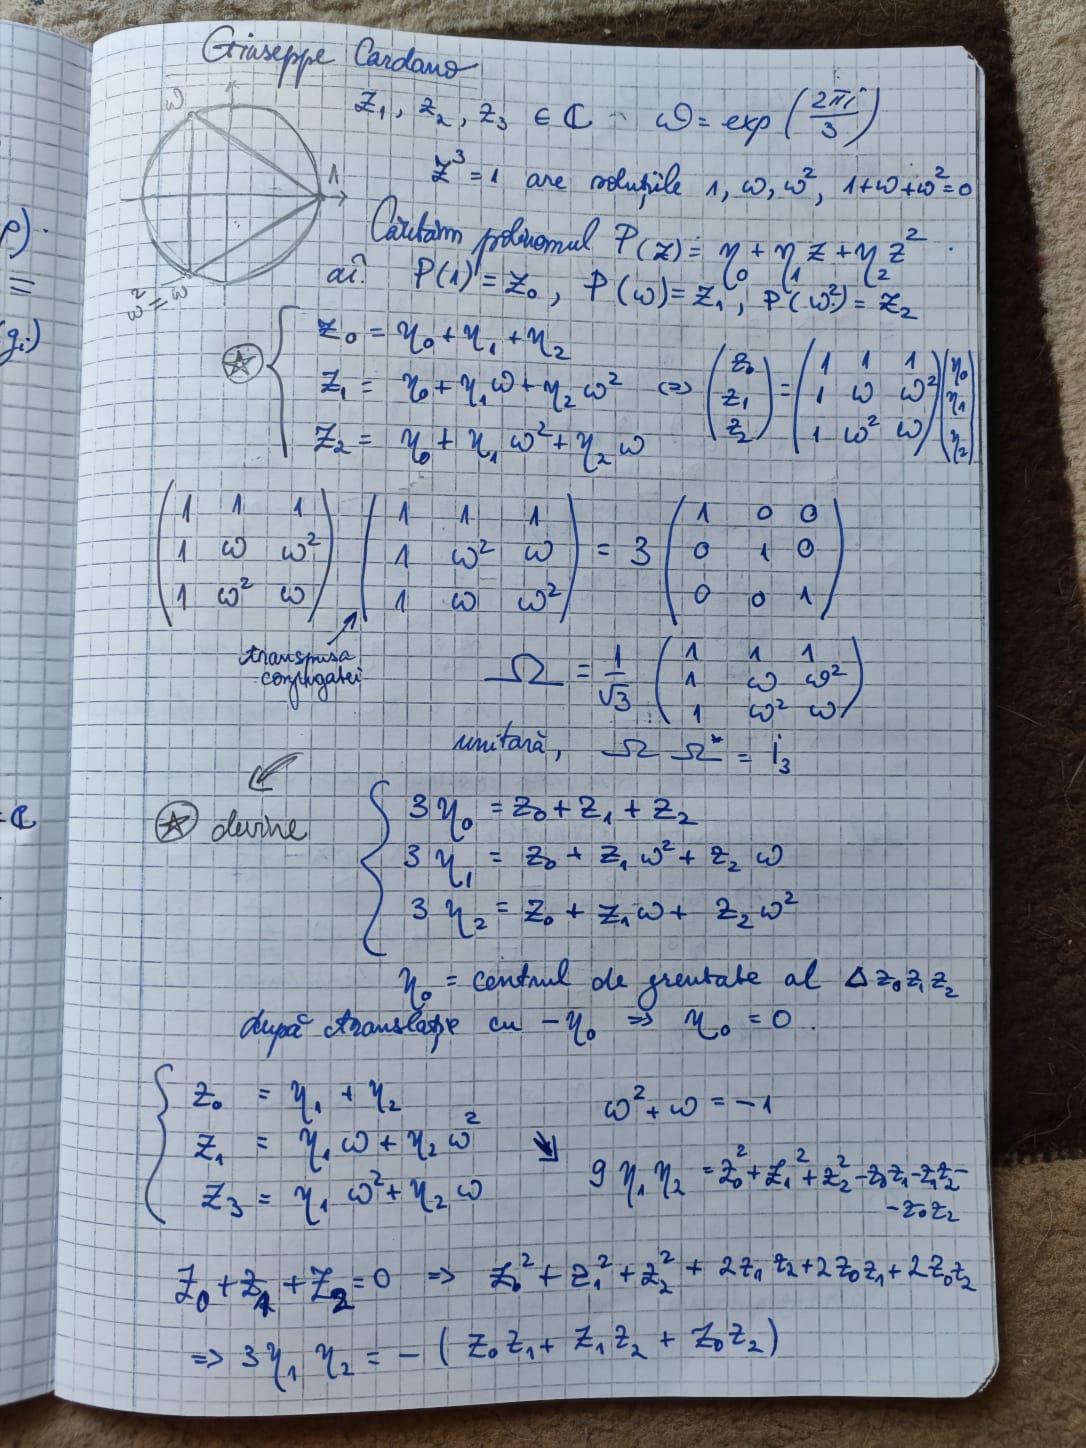 Giuseppe Cardano
z₁, z₂, z₃ ∈ ℂ ω = exp(2πi/3)
z³ = 1 are soluțiile 1, ω, ω², 1+ω+ω²=0
ω
1
ω² = ω̄
Căutăm polinomul P(z) = η₀ + η₁ z + η₂ z²
aî. P(1) = z₀, P(ω) = z₁, P(ω²) = z₂
z₀ = η₀ + η₁ + η₂
z₁ = η₀ + η₁ω + η₂ω² ⇔ (z₀ z₁ z₂) = (1 1 1 / 1 ω ω² / 1 ω² ω) (η₀ η₁ η₂)
z₂ = η₀ + η₁ω² + η₂ω
(1 1 1 / 1 ω ω² / 1 ω² ω) (1 1 1 / 1 ω² ω / 1 ω ω²) = 3 (1 0 0 / 0 1 0 / 0 0 1)
transpusa
conjugatei
Ω = 1/√3 (1 1 1 / 1 ω ω² / 1 ω² ω)
unitară, Ω Ω* = i₃
devine
3η₀ = z₀ + z₁ + z₂
3η₁ = z₀ + z₁ω² + z₂ω
3η₂ = z₀ + z₁ω + z₂ω²
η₀ = centrul de greutate al Δ z₀z₁z₂
după translație cu −η₀ ⇒ η₀ = 0.
z₀ = η₁ + η₂ ω² + ω = −1
z₁ = η₁ω + η₂ω²
z₃ = η₁ω² + η₂ω
9η₁η₂ = z₀² + z₁² + z₂² − z₀z₁ − z₁z₂ −
− z₀z₂
z₀ + z₁ + z₂ = 0 ⇒ z₀² + z₁² + z₂² + 2z₁z₂ + 2z₀z₁ + 2z₀z₂
⇒ 3η₁η₂ = −(z₀z₁ + z₁z₂ + z₀z₂)
ρ).
≡
gᵢ)
= ℂ